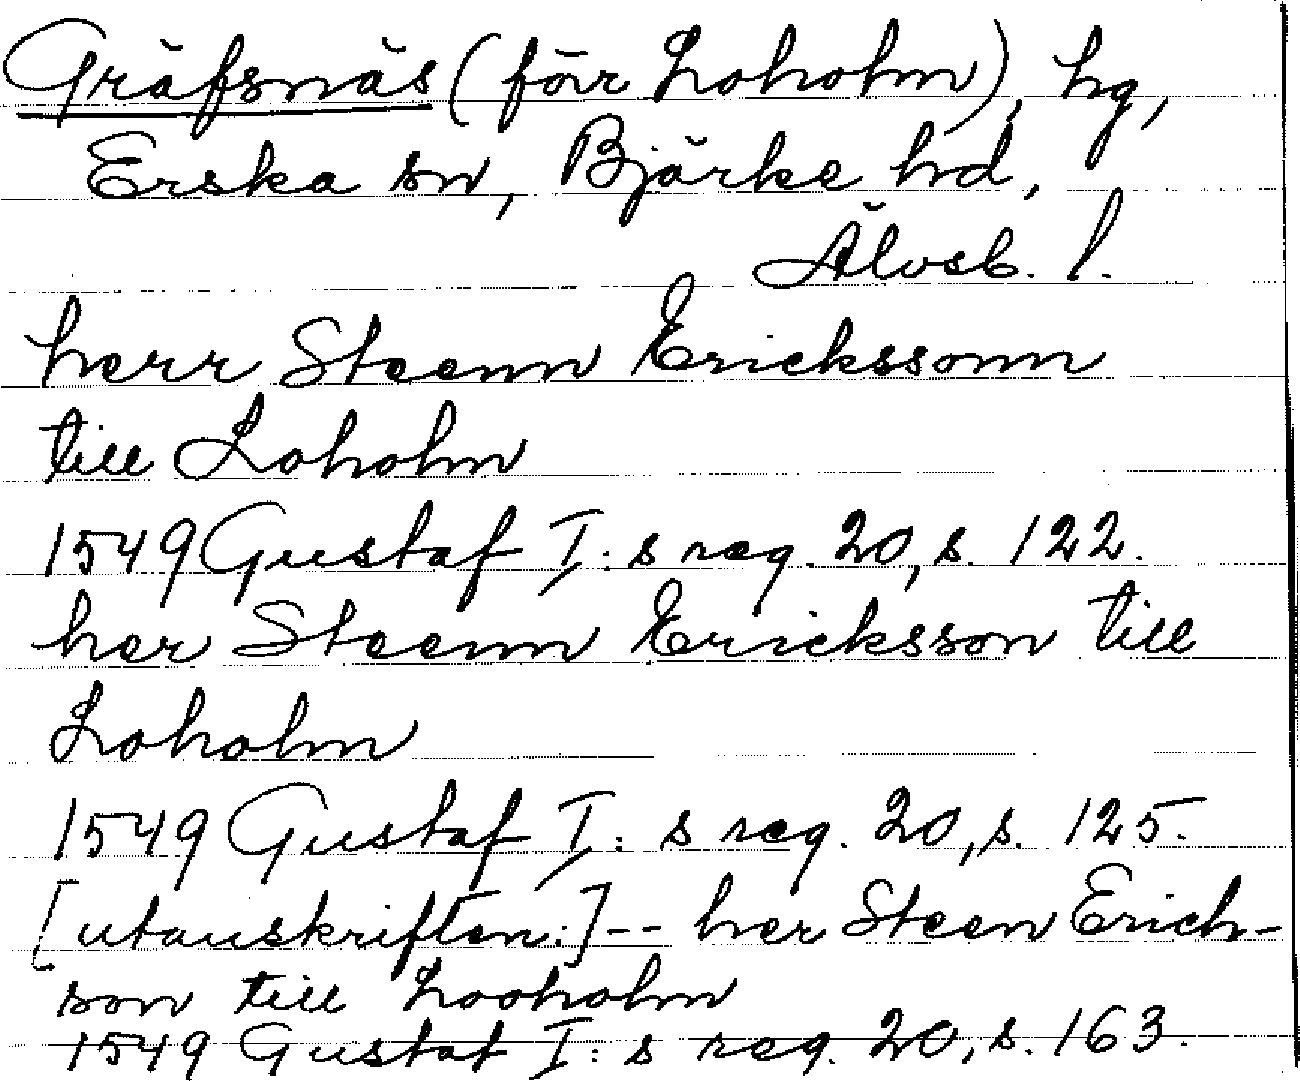 Gräfsnäs (förr Loholm), hg,
Erska sn, Bjärke hd,
Älvsb. l.
herr Steenn Erickssonn
till Loholm
1549 Gustaf I:s reg. 20, s. 122.
her Steenn Ericksson till
Loholm
1549 Gustaf I:s reg. 20, s. 125.
[utanskriften:]-- her Steen Erich-
son till Looholm
1549 Gustaf I:s reg. 20, s. 163.